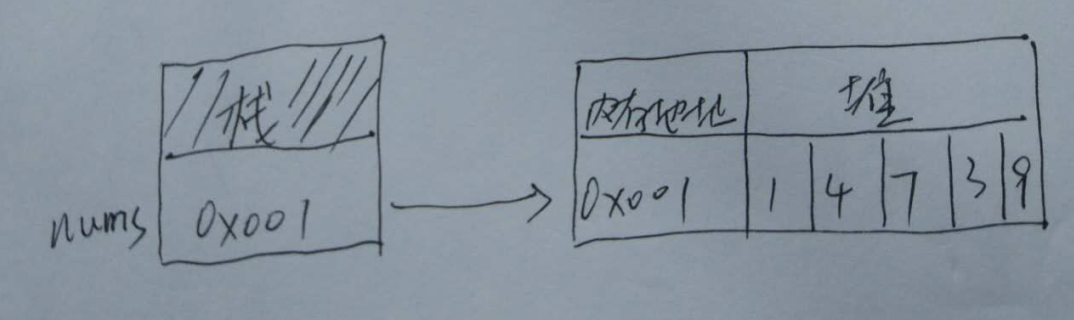 栈
nums 0x001
内存地址 堆
0x001 1 4 7 3 9